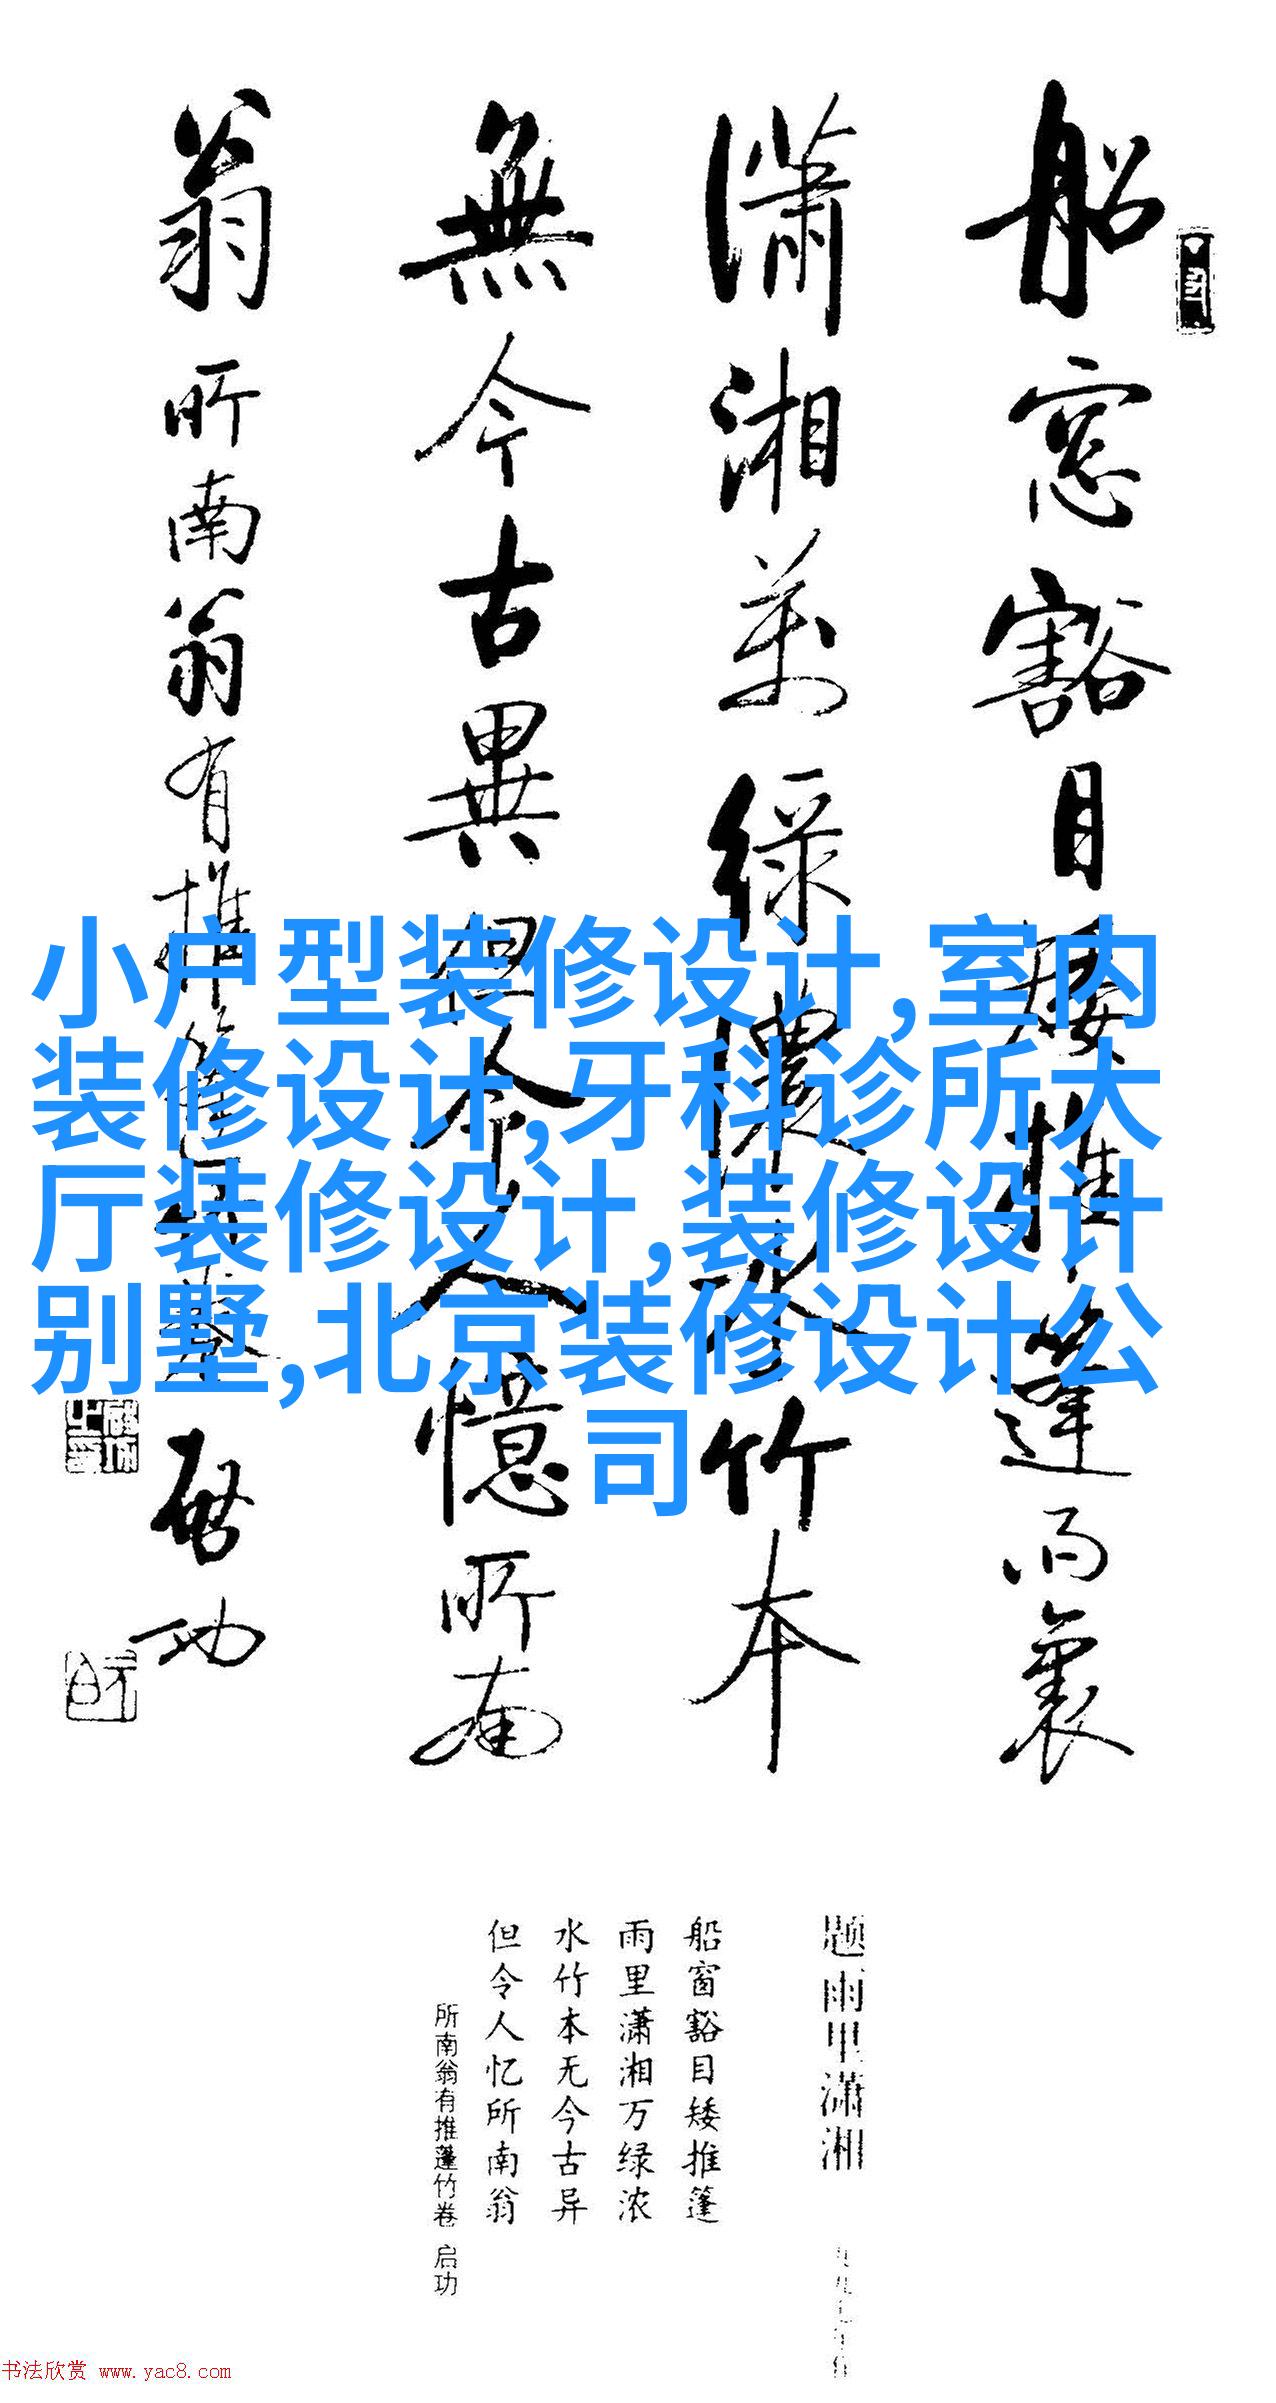 船窓豁目矮推篷雨裏
瀟湘萬緑濃水竹本
無今古異但令人憶所南
翁 所南翁有推篷竹卷 啓功
小户型装修设计,室内
装修设计,牙科诊所大
厅装修设计,装修设计
别墅,北京装修设计公
司
题雨里潇湘
船窗豁目矮推篷
雨里潇湘万绿浓
水竹本无今古异
但令人忆所南翁
所南翁有推蓬竹卷 启功
书法欣赏 www.yac8.com